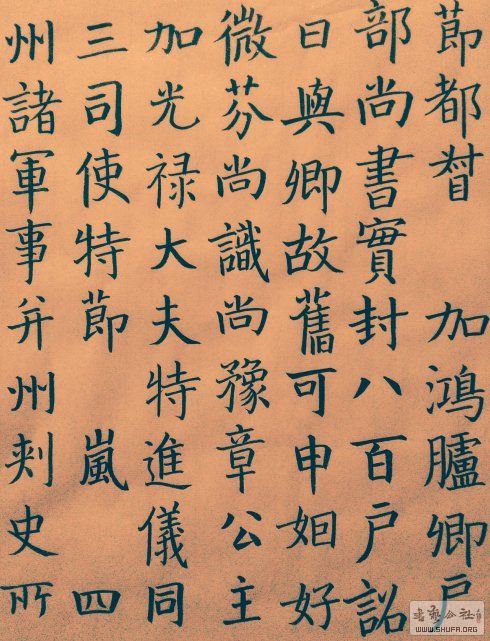 莭都督 加鴻臚卿戶
部尚書實封八百戶詔
日與卿故舊可申姻好
微芬尚識尚豫章公主
加光禄大夫特進儀同
三司使特莭 嵐 四
州諸軍事并州刾史所
WWW.SHUFA.ORG